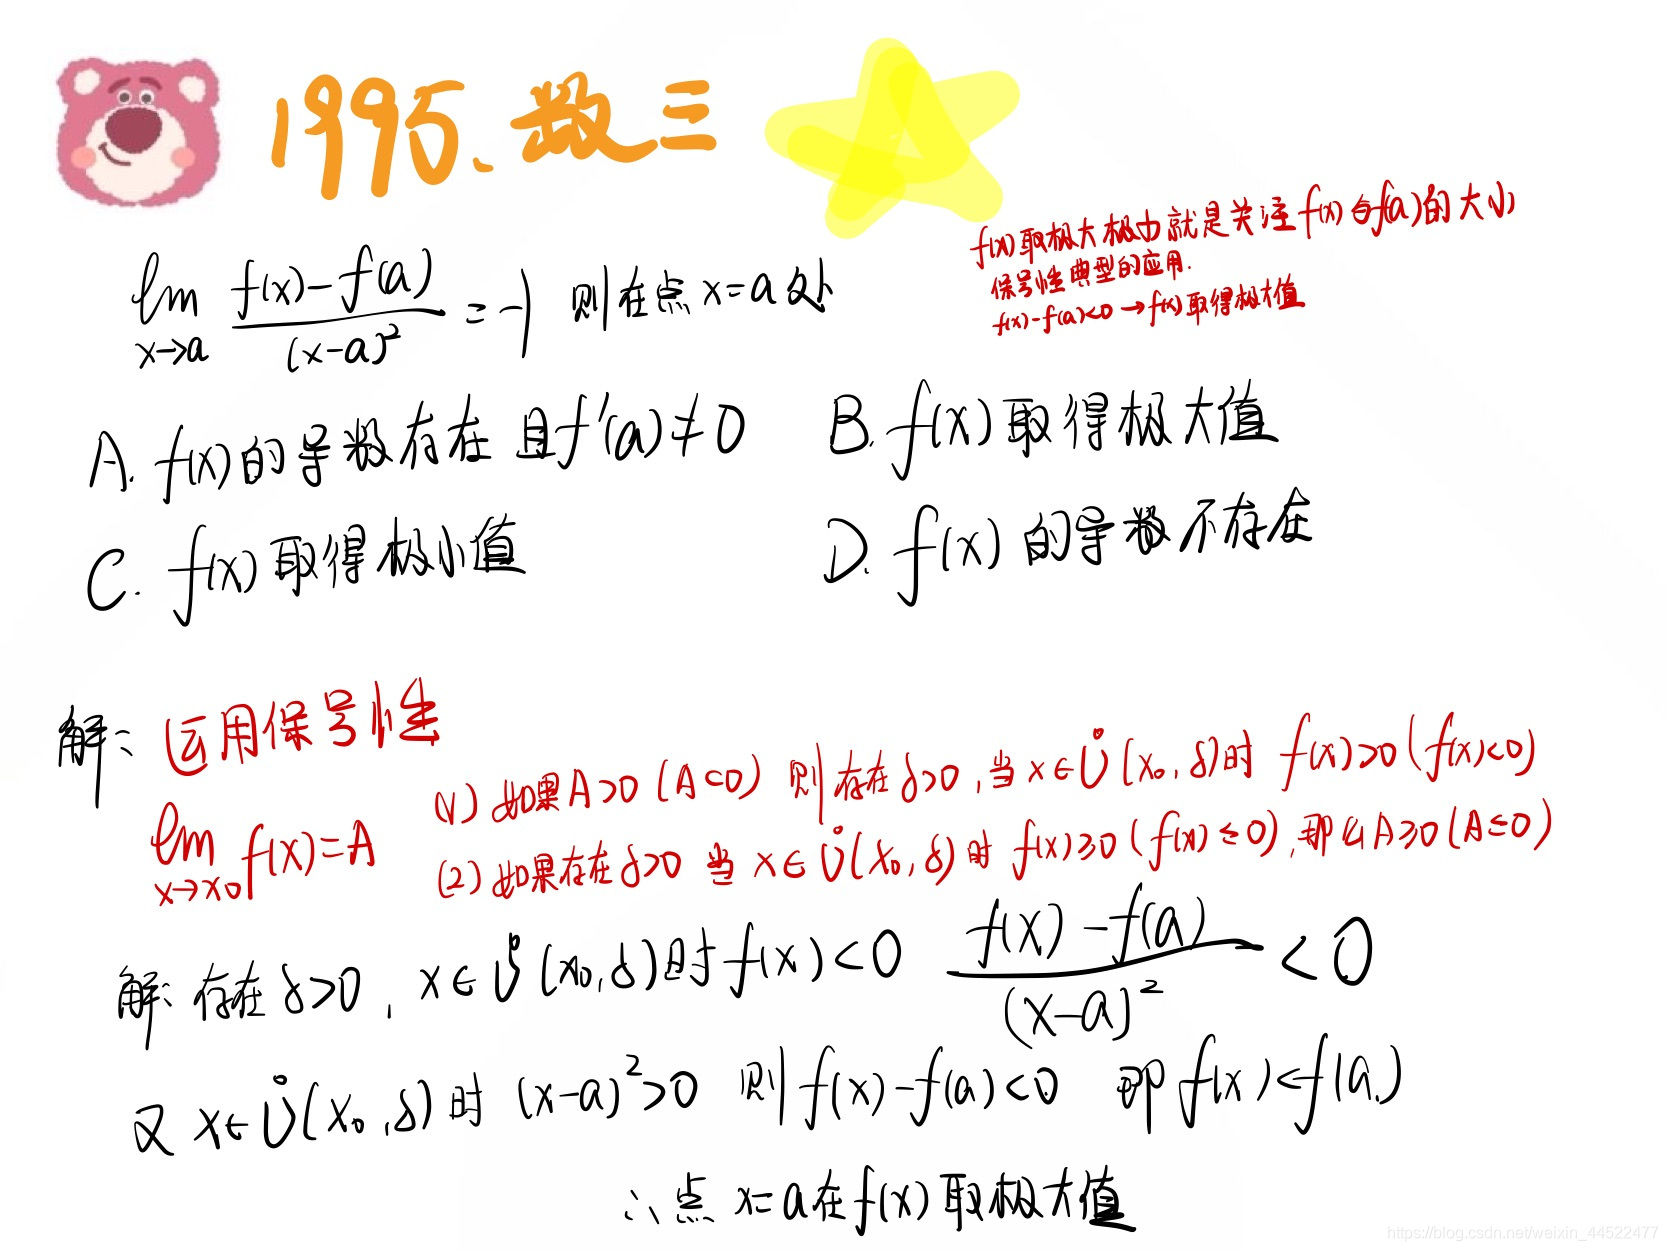 1995、数三
f(x)取极大极小就是关注f(x)与f(a)的大小
保号性典型的应用.
f(x)-f(a)<0→f(x)取得极大值
lim x→a (f(x)-f(a))/(x-a)² = -1 则在点x=a处
A. f(x)的导数存在且f'(a)≠0 B. f(x)取得极大值
C. f(x)取得极小值 D. f(x)的导数不存在
解: 运用保号性
lim x→x₀ f(x)=A
(1) 如果A>0 (A<0) 则存在δ>0,当x∈Ů(x₀,δ)时 f(x)>0(f(x)<0)
(2) 如果存在δ>0 当x∈Ů(x₀,δ)时 f(x)≥0(f(x)≤0),那么A≥0(A≤0)
解: 存在δ>0, x∈Ů(x₀,δ)时f(x)<0 (f(x)-f(a))/(x-a)² <0
又 x∈Ů(x₀,δ)时 (x-a)²>0 则f(x)-f(a)<0 即f(x)<f(a)
∴点x=a在f(x)取极大值
https://blog.csdn.net/weixin_44522477